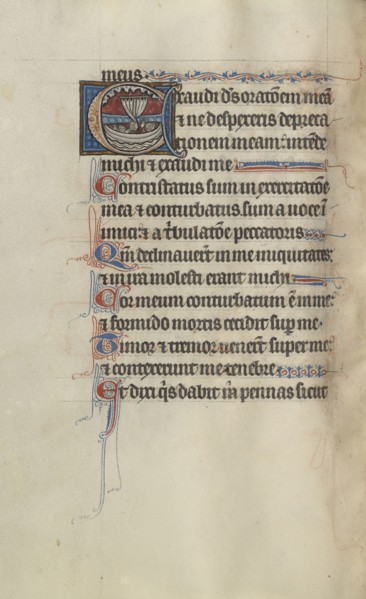 meus
Exaudi ds oratoem meā
& ne despexeris depreca
cionem meam: intēde
michi & exaudi me
Contristatus sum in exercitatōe
mea & conturbatus sum a uoce ī
imici & a tbulatōe peccatoris
Qm declinauert in me iniquitates:
& in ira molesti erant michi
Cor meum conturbatum ē in me:
& formido mortis cecidit sup me
Timor & tremor uenert super me:
& contexerunt me tenebre
Et dixi qs dabit m pennas sicut